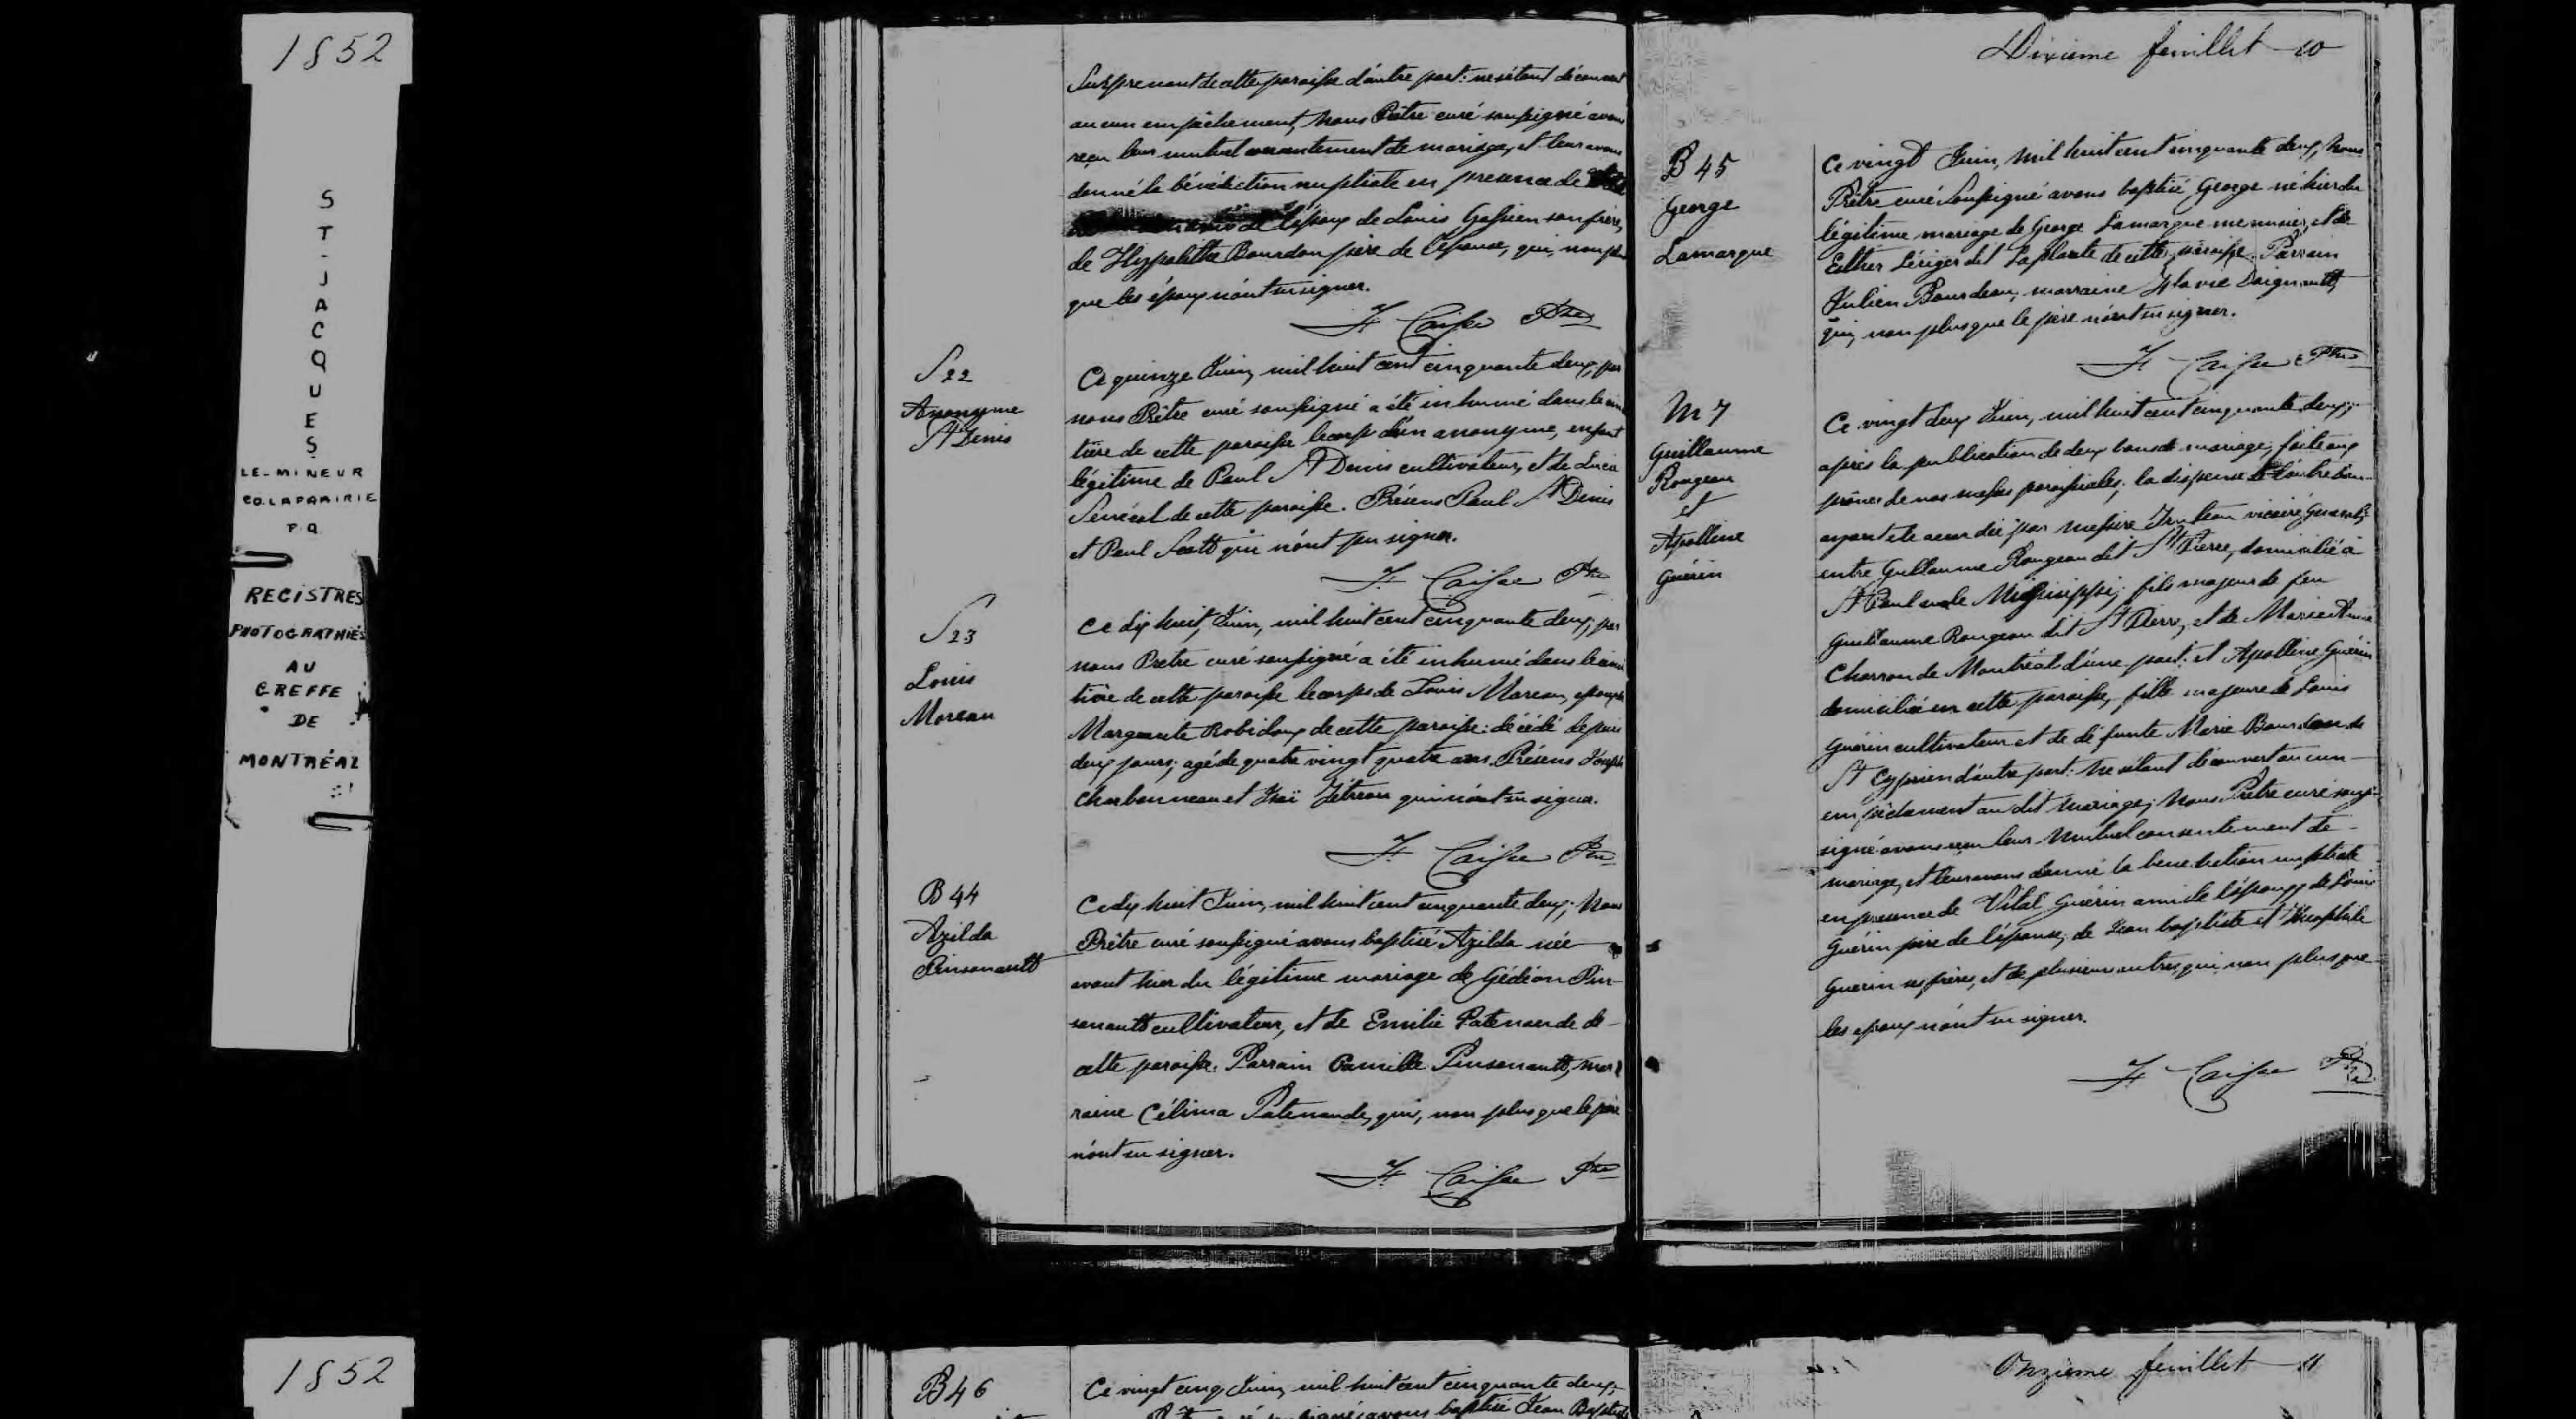 1852
ST-JACQUES
LE-MINEUR
CO. LAPRAIRIE
P.Q.
REGISTRES
PHOTOGRAPHIÉS
AU
GREFFE
DE
MONTRÉAL
Surprenant de cette paroisse d'autre part: ne s'étant découvert
aucun empêchement, Nous Prêtre curé soussigné avons
reçu leur mutuel consentement de mariage, et leur avons
donné la bénédiction nuptiale en presence de
de l'époux de Louis Gassien son frère,
de Hypolithe Bourdon père de l'épouse, qui, non plus
que les époux n'ont su signer.
F. Caisse Ptre
S 22
Anonyme
St Denis
Ce quinze Juin, mil huit cent cinquante deux, par
nous Prêtre curé soussigné a été inhumé dans le cime
tière de cette paroisse le corps d'un anonyme, enfant
légitime de Paul St Denis cultivateur, et de Luce
Senécal de cette paroisse. Présens Paul St Denis
et Paul Scott qui n'ont pu signer.
F. Caisse Ptre
S 23
Louis
Moreau
Ce dix huit, Juin, mil huit cent cinquante deux, par
nous Pretre curé soussigné a été inhumé dans le cime
tière de cette paroisse le corps de Louis Moreau, époux de
Marguerite Robidoux de cette paroisse: décédé depuis
deux jours; agé de quatre vingt quatre ans. Présens Joseph
Charbonneau et Isaï Tétreau qui n'ont su signer.
F. Caisse Ptre
B 44
Azilda
Pinsonault
Ce dix huit Juin, mil huit cent cinquante deux; Nous
Prêtre curé soussigné avons baptisé Azilda née
avant hier du légitime mariage de Gédéon Pin-
sonault cultivateur, et de Emilie Patenaude de
cette paroisse. Parrain Camille Pinsonault, mar
raine Célima Patenaude, qui, non plus que le père
n'ont su signer.
F. Caisse Ptre
Dixième feuillet 10
B 45
George
Lamarque
Ce vingt Juin, mil huit cent cinquante deux, Nous
Prêtre curé Soussigné avons baptisé George né hier du
légitime mariage de George Lamarque menuisier, et de
Esther Lériger dit Laplante de cette paroisse. Parrain
Julien Bourdeau, marraine Flavie Daignault,
qui, non plus que le père n'ont su signer.
F. Caisse Ptre
M 7
Guillaume
Rougeau
et
Apolline
Guérin
Ce vingt deux Juin, mil huit cent cinquante deux;
après la publication de deux bans de mariage, faite aux
prônes de nos messes paroissiales; la dispense de l'autre ban
ayant été accordée par Messire Truteau vicaire Général;
entre Guillaume Rougeau dit St Pierre, domicilié à
St Paul Missisippi; fils majeur de feu
Guillaume Rougeau dit St Pierre, et de Marie Anne
Charron de Montréal d'une part: et Apolline Guérin
domiciliée en cette paroisse, fille majeure de Louis
Guérin cultivateur et de défunte Marie Bourdon de
St Cyprien d'autre part: Ne s'étant découvert aucun
empêchement au dit mariage; Nous Prêtre curé sous-
signé avons reçu leur Mutuel consentement de
mariage, et leur avons donné la bénédiction nuptiale
en presence de Vital Guérin ami de l'époux, de Louis
Guérin père de l'épouse, de Jean baptiste et Théophile
Guérin ses frères, et de plusieurs autres qui non plus que
les époux n'ont su signer.
F. Caisse Ptre
1852
B 46
Ce vingt cinq Juin, mil huit cent cinquante deux,
avons baptisé Jean Baptiste
Onzième feuillet 11